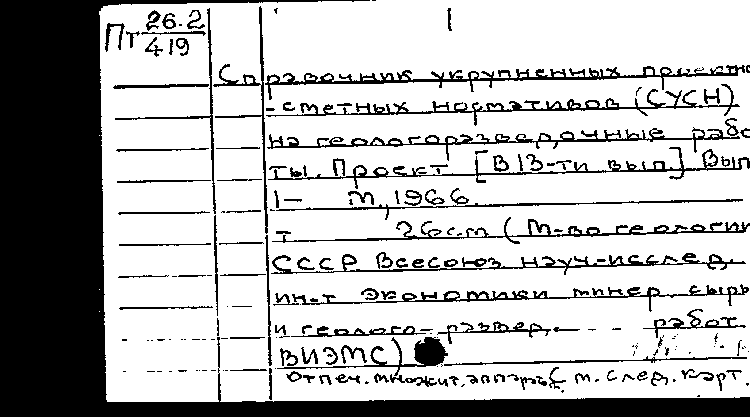 Пт 26.2/419
1
Справочник укрупненных проектно
-сметных нормативов (СУСН)
на геологоразведочные рабо
ты. Проект. [В 13-ти вып.] Вып
1- М., 1966.
т 26см (М-во геологии
СССР. Всесоюз науч-исслед.
ин-т экономики минер. сырь
и геолого-развед. работ
ВИЭМС)
Отпеч. множит. аппарат. (т. след. карт.